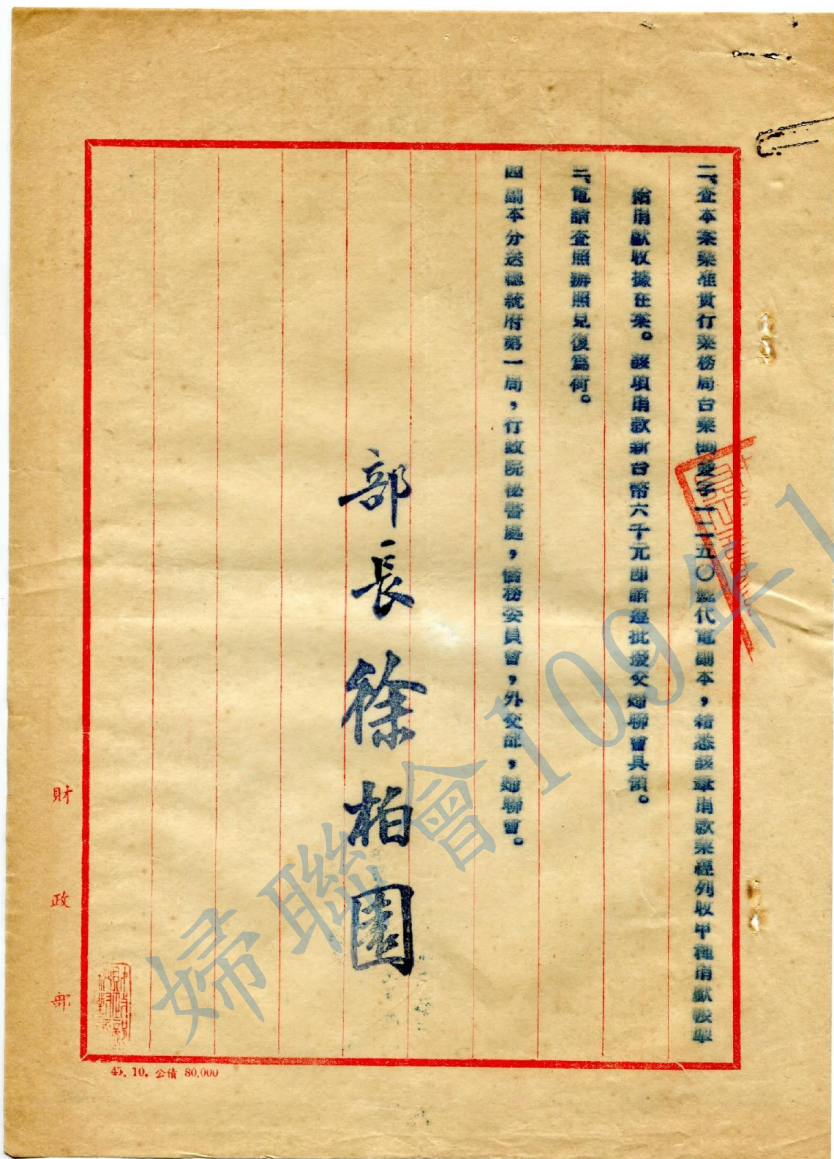 二、查本案業准貴行業務局台業 字一二五〇號代電副本,藉悉該筆捐款業經列收甲種捐獻帳
給捐獻收據在案。該項捐款新台幣六千元即請逕批撥交婦聯會具領。
三、電請查照辦照見復為荷。
四副本分送總統府第一局,行政院祕書處,僑務委員會,外交部,婦聯會。
部長徐柏園
財政部
45. 10. 公債 80,000
婦聯會109年1